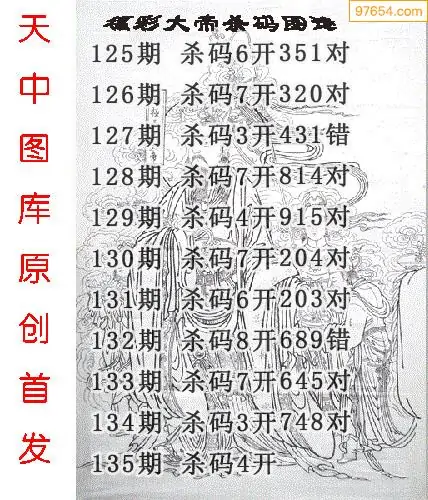 97654.com
福彩大帝杀码图迷
天中图库原创首发
125期 杀码6开351对
126期 杀码7开320对
127期 杀码3开431错
128期 杀码7开814对
129期 杀码4开915对
130期 杀码7开204对
131期 杀码6开203对
132期 杀码8开689错
133期 杀码7开645对
134期 杀码3开748对
135期 杀码4开